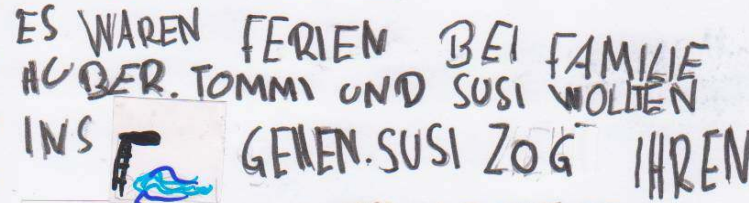 ES WAREN FERIEN BEI FAMILIE
HUBER. TOMMI UND SUSI WOLLTEN
INS GEHEN. SUSI ZOG IHREN